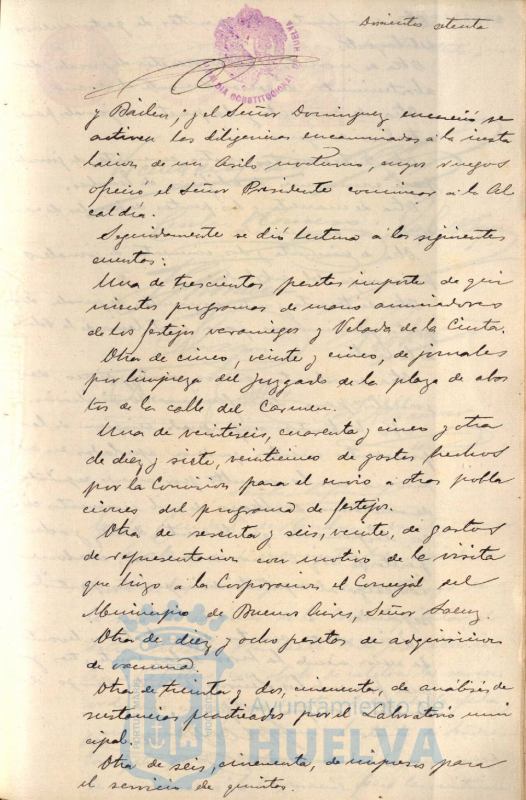 Doscientos setenta
ALCALDIA CONSTITUCIONAL DE HUELVA
y Bailen; y el Señor Dominguez encareció se
activen las diligencias encaminadas á la insta
lacion de un Asilo nocturno, cuyos ruegos
ofreció el Señor Presidente comunicar á la Al
caldía.
Seguidamente se dió lectura á las siguientes
cuentas:
Una de trescientas pesetas importe de qui
nientos programas de mano anunciadores
de los festejos veraniegos y Velada de la Cinta.
Otra de cinco, veinte y cinco, de jornales
por limpieza del Juzgado de la plaza de abas
tos de la calle del Carmen.
Una de veintiseis, cuarenta y cinco y otra
de diez y siete, veinticinco de gastos hechos
por la Comision para el envio á otras pobla
ciones del programa de festejos.
Otra de sesenta y seis, veinte, de gastos
de representacion con motivo de la visita
que hizo á la Corporacion el Concejal del
Municipio de Buenos Aires, Señor Saenz.
Otra de diez y ocho pesetas de adquisicion
de vacuna.
Otra de treinta y dos, cincuenta, de análisis de
sustancias practicados por el Laboratorio muni
cipal.
Otra de seis, cincuenta, de impresos para
el servicio de quintas.
Ayuntamiento de
HUELVA